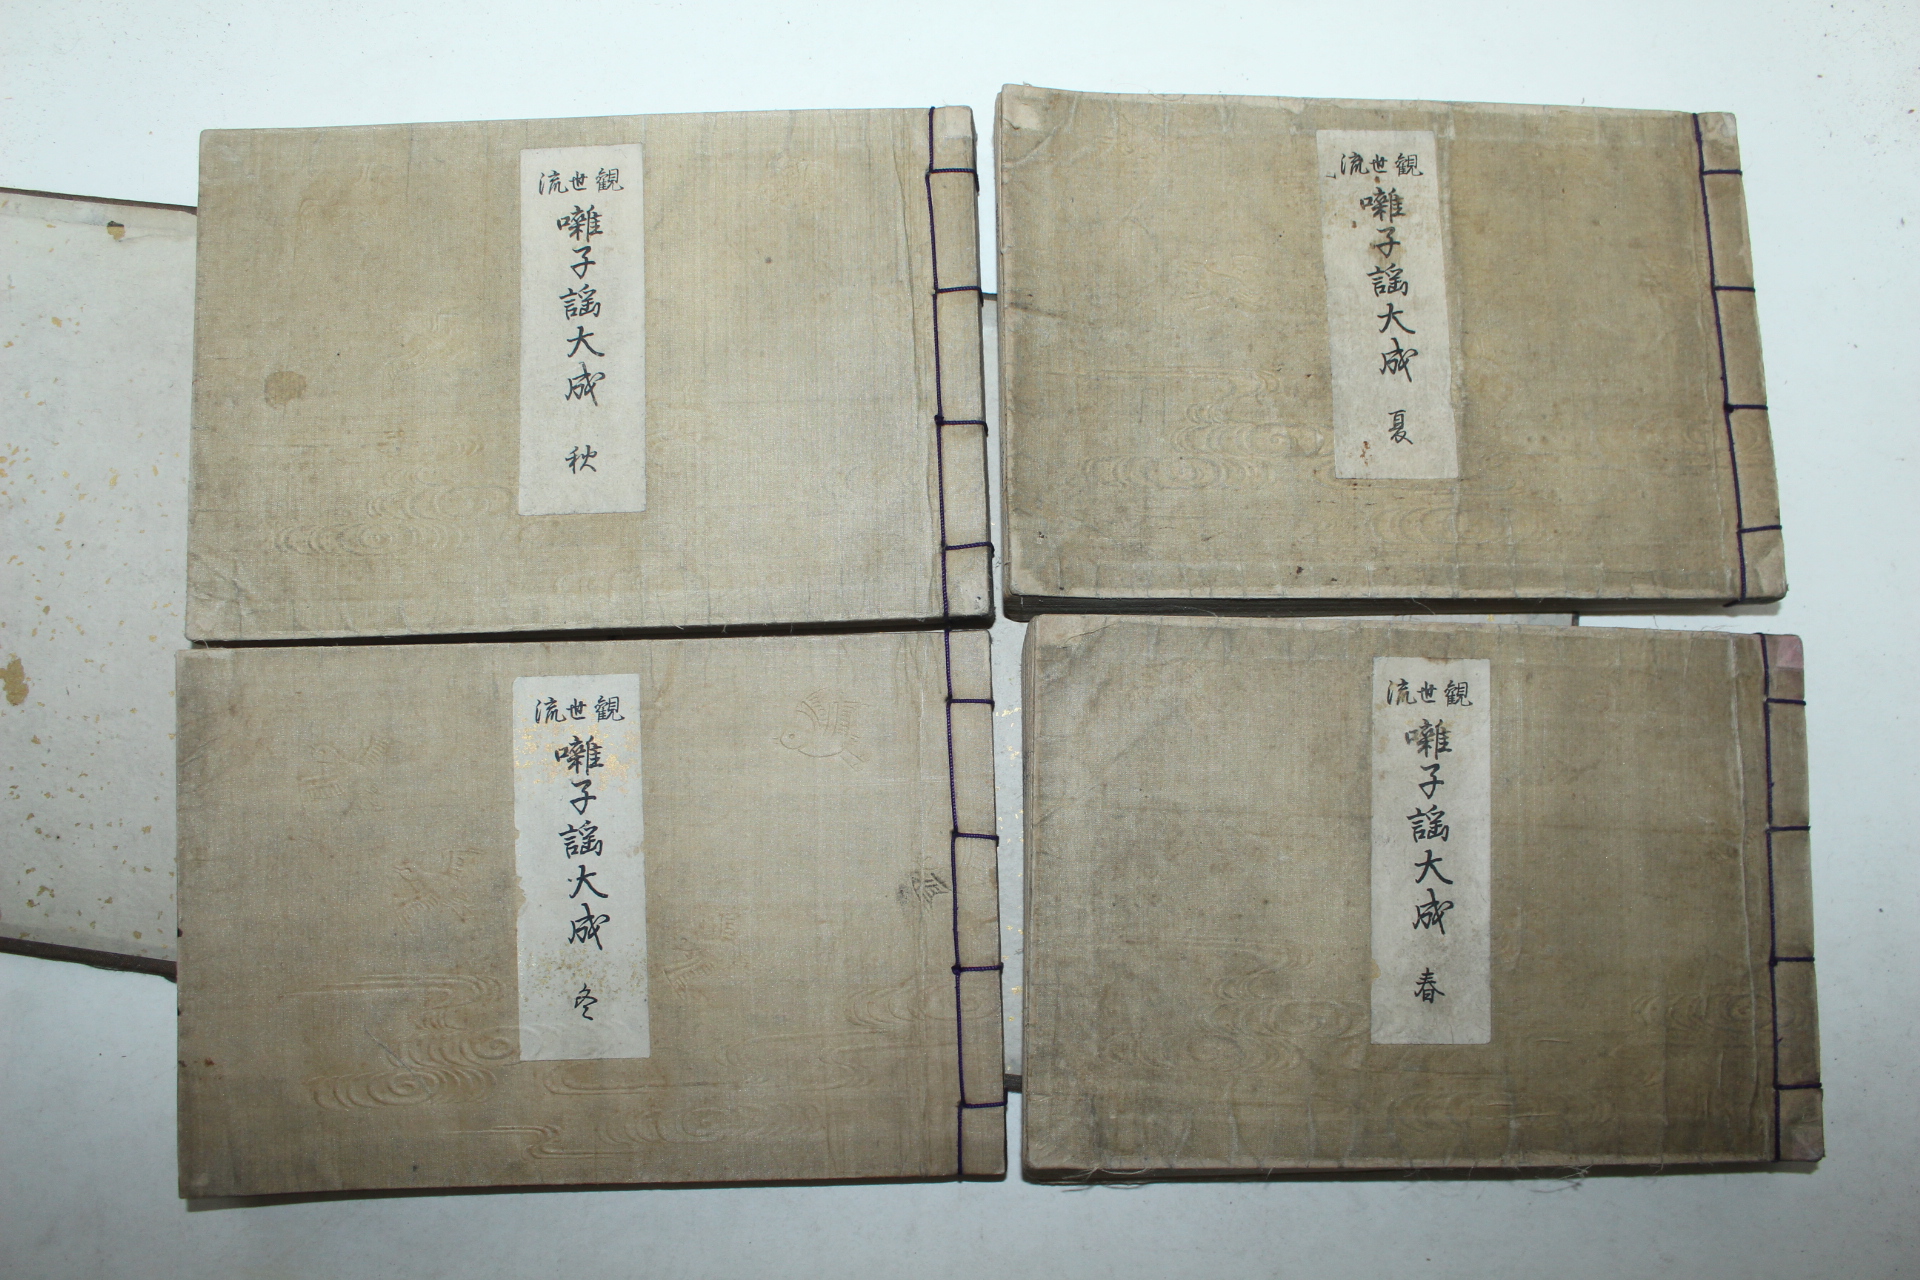 観世流
囃子謡大成 夏
観世流
囃子謡大成 秋
観世流
囃子謡大成 春
観世流
囃子謡大成 冬